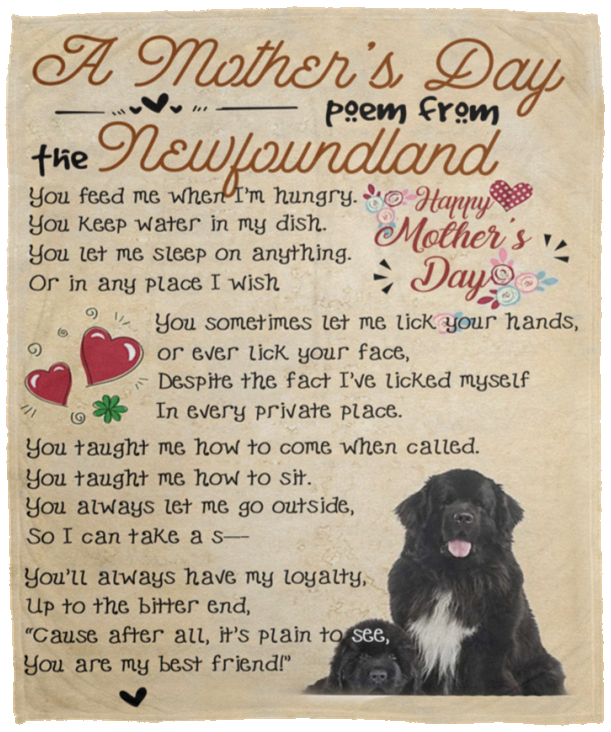 A Mother's Day
poem from
the Newfoundland
You feed me when I'm hungry.
You keep water in my dish.
You let me sleep on anything.
Or in any place I wish
Happy
Mother's
Day
You sometimes let me lick your hands,
or ever lick your face,
Despite the fact I've licked myself
In every private place.
You taught me how to come when called.
You taught me how to sit.
You always let me go outside,
So I can take a s—
You'll always have my loyalty,
Up to the bitter end,
"Cause after all, it's plain to see,
You are my best friend!"